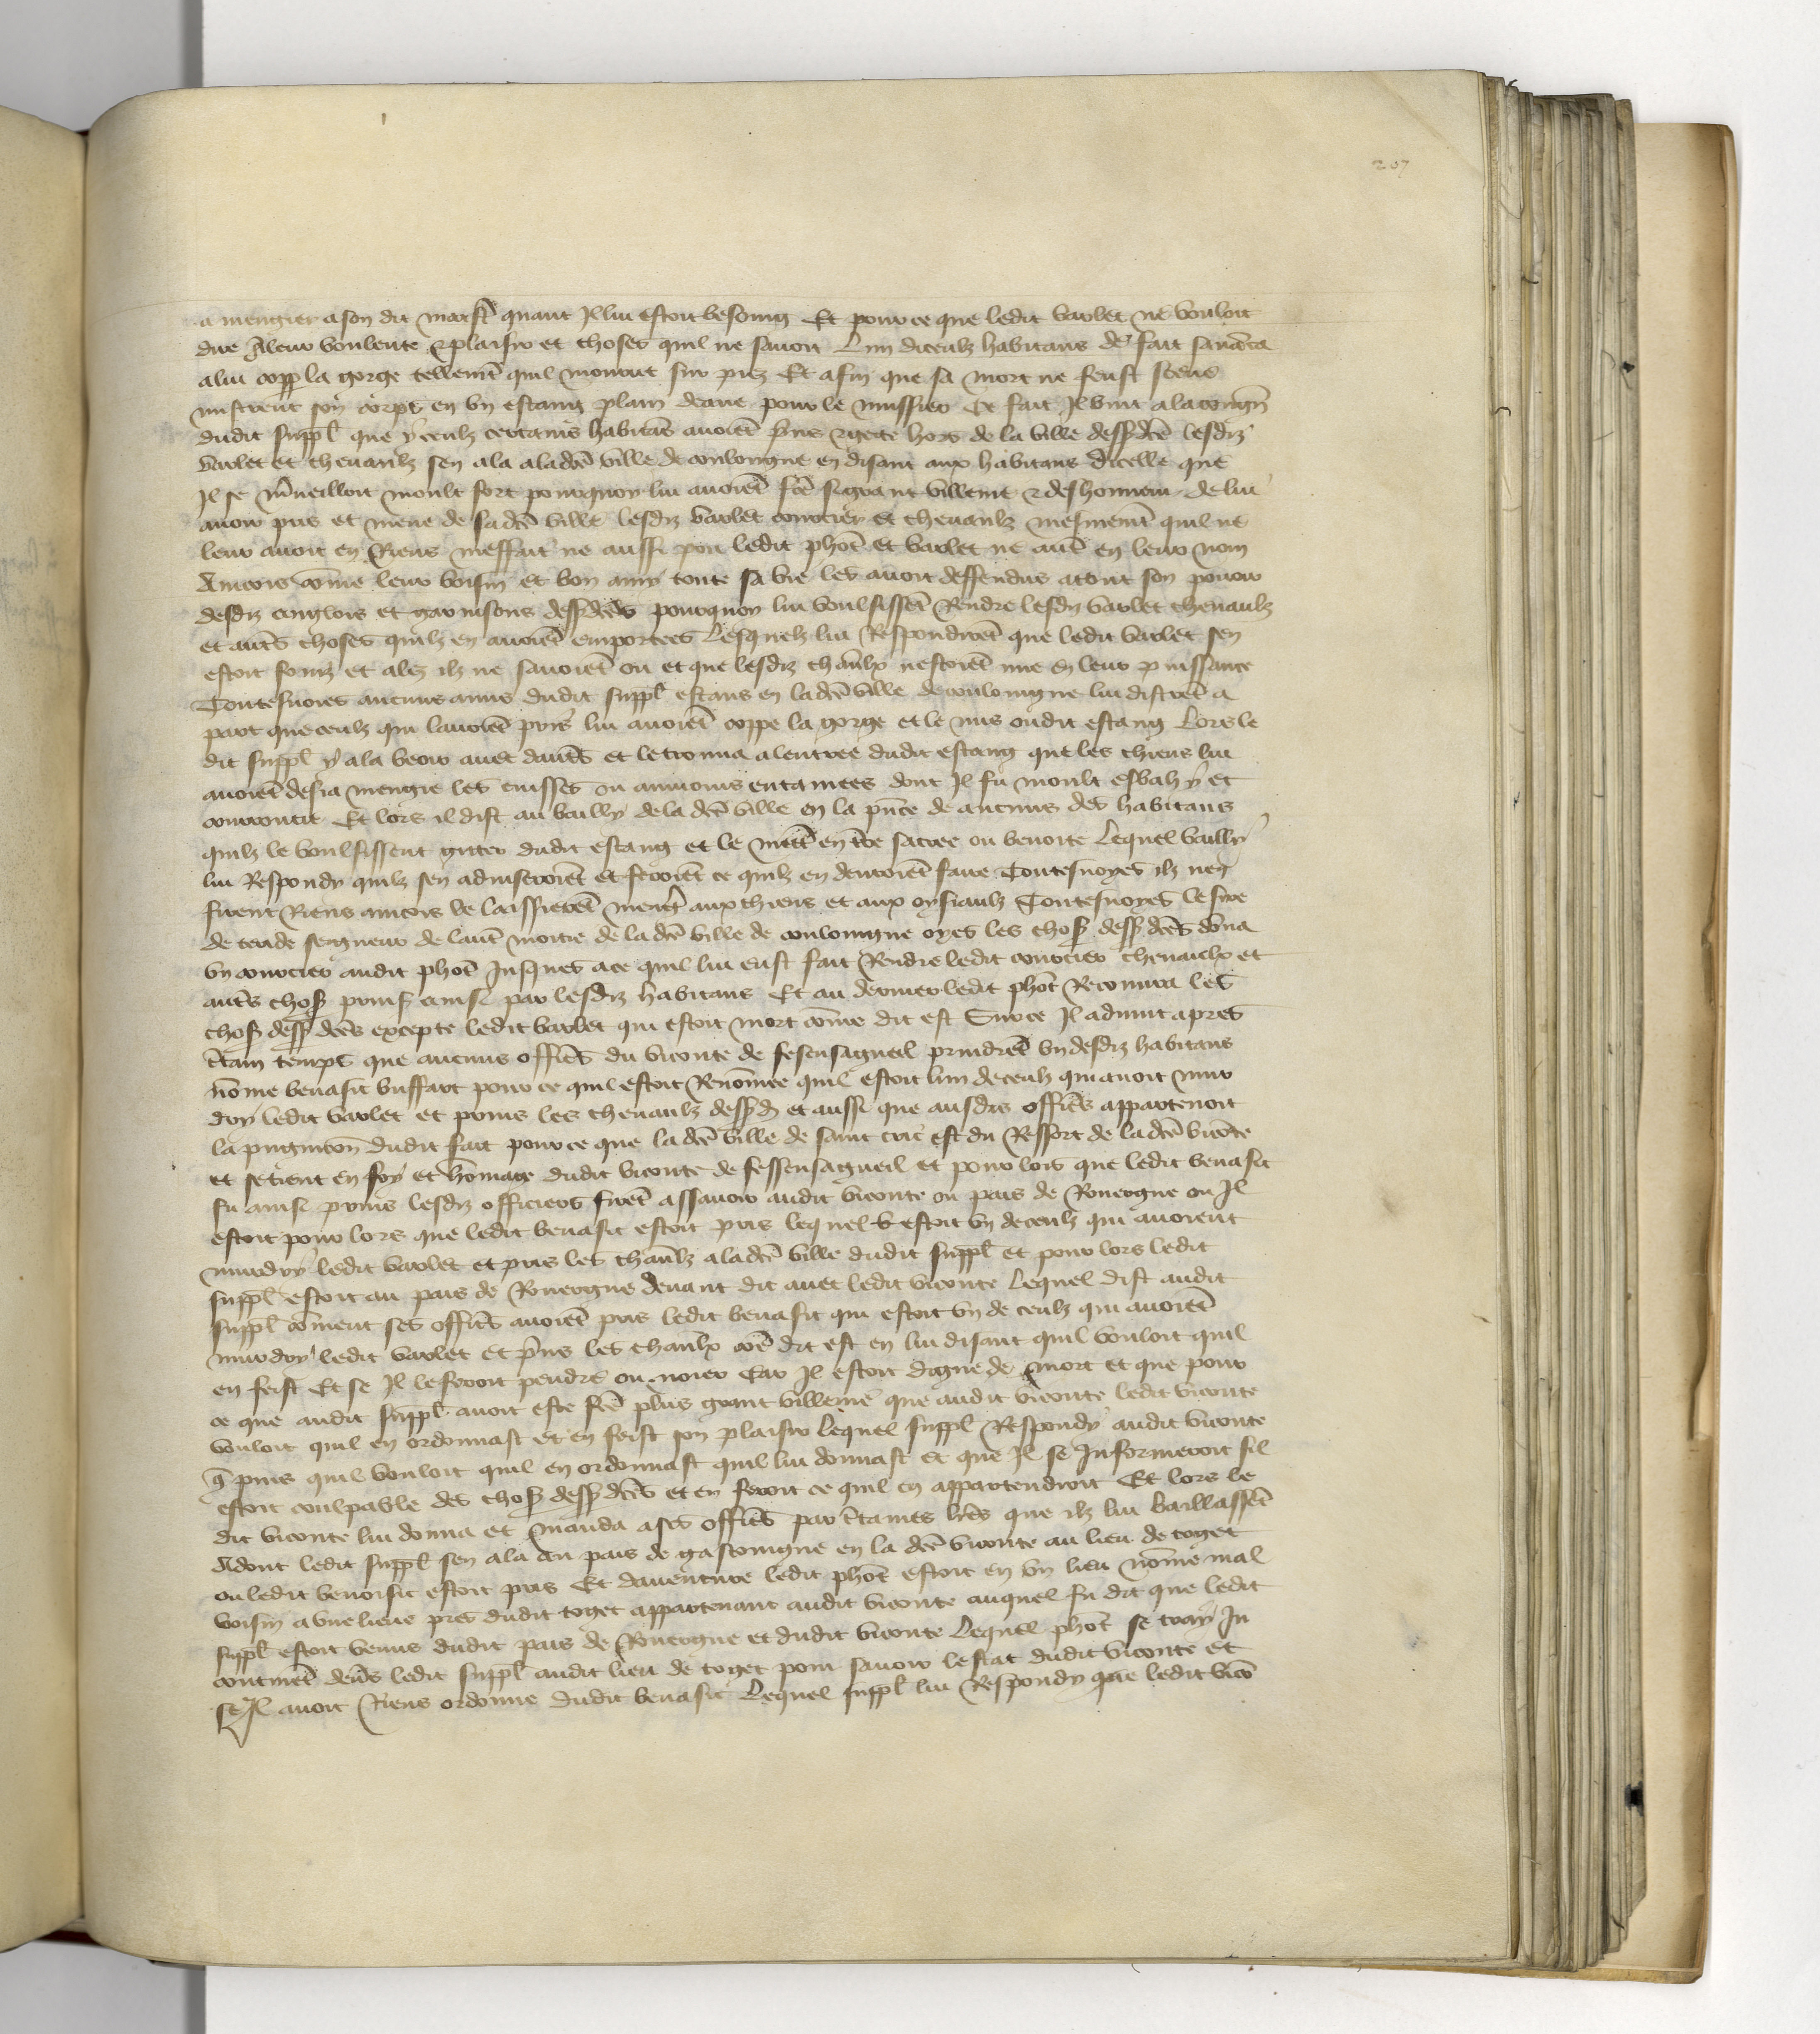 207
a mengier a son dit maistr quant Il lui estoit besoing Et pour ce que ledit varlet ne vouloit
dire A leur voulente & plaisir et choses quil ne savoit Lun diceulz habitans de fait
a lui copp la gorge tellemt quil mourut sur piez Et afin que sa mort ne feust sceue
mistrent son corps en un estang plain deaue pour le mussier Ce fait Il vint a la congn
dudit suppl que yceulz certains habitas avoiet prins & gecte hors de la ville dessdce lesdiz
varlet et chevaulz sen ala a ladce ville de coulongne en disant aux habitans dicelle que
Il se mveilloit moult fort pourquoy lui avoiet fce si grant villenie & deshonneur de lui
avoir pris et mene de sa dce ville lesdiz varlet courcier et chevaulz mesmemt quil ne
leur avoit en Riens meffait ne aussi pou ledit phot et varlet ne aut en leur nom
Aincois come leur voisin et bon amy toute sa vie les avoit deffendus a tout son povoir
desdiz anglois et garnisons dessdces pourquoy lui voulsissent Rendre lesdiz varlet chevaulz
et auts choses quilz en avoiet emportees Lesquelz lui Respondiret que ledit varlet sen
estoit fouiz et alez ilz ne savoiet ou et que lesdiz chaulx nestoiet mie en leur puissance
Toutesvoies aucuns amis dudit suppl estans en ladce ville de coulongne lui distret a
part que ceulz qui lavoiet pris lui avoiet coppe la gorge et le mis oudit estang Lors le
dit suppl y ala veoir avec dauts et le trouva a lentree dudit estang que les chiens lui
avoiet desia mengie les cuisses ou environs entamees dont Il fu moult esbahy et
courroucie Et lors il dist au bailly de la dce ville en la pnce de aucuns des habitans
quilz le voulsissent gitter dudit estang et le mett en tre sacree ou benoite Lequel bailly
lui Respondy quilz sen adviseroiet et feroiet ce quilz en devroiet faire Toutesvoyes ilz nen
firent Riens aincois le laissieret mengr aux chiens et aux oysiaulz Toutesvoyes le sire
de terade seigneur de laut moitie de la dce ville de coulongne oyes les chos dessdces dona
un courcier audit phot Jusques a ce quil lui eust fait Rendre ledit courcier chevaulx et
auts chos prins ainsi par lesdiz habitans Et au derrier ledit phot Recouvra les
chos dessdces excepte ledit varlet qui estoit mort come dit est Sur ce Il advint apres
ctain temps que aucuns officrs du viconte de fesensagueil prindret un desdiz habitans
nomme benasit buffart pour ce quil estoit Renommee quil estoit lun de ceulz qui avoit mur
dry ledit varlet et prins les chevaulz dessd et aussi que ausdis officrs appartenoit
la pugnicon dudit fait pour ce que la dce ville de saint cric est du Ressort de ladce viconte
et se tient en foy et hommage dudit viconte de fessensagueil et pour lors que ledit benasit
fu ainsi prins lesdiz officiers firet assavoir audit viconte ou pais de Rouergue ou Il
estoit pour lors que ledit benasit estoit pris lequel estoit un de ceulz qui avoient
murdry ledit varlet et pris les chaulz a ladce ville dudit suppl et pour lors ledit
suppl estoit au pais de Rouergue devant dit avec ledit viconte Lequel dist audit
suppl coment ses officrs avoiet pris ledit benasit qui estoit un de ceulz qui avoiet
murdry ledit varlet et prins les chaulx coe dit est en lui disant quil vouloit quil
en feist Et se Il le feroit pendre ou noier car Il estoit digne de mort et que pour
ce que audit suppl avoit este fce plus grant villenie que audit viconte ledit viconte
vouloit quil en ordonnast et en feist son plaisir Lequel suppl Respondy audit viconte
q puis quil vouloit quil en ordonnast quil lui donnast et que Il se Informeroit sil
estoit coulpable des chos dessdces et en feroit ce quil en appartendroit Et lors le
dit viconte lui donna et manda a ses officrs par ctaines lres que ilz lui baillassent
Adont ledit suppl sen ala au pais de gascongne en la dce viconte au lieu de toget
ou ledit benoisit estoit pris Et daventure ledit phot estoit en un lieu nomme mal
voisin a une lieue pres dudit toget appartenant audit viconte auquel fu dit que ledit
suppl estoit venus dudit pais de Rouergue et dudit viconte Lequel phot se tray In
continet devs ledit suppl audit lieu de toget pour savoir lestat dudit viconte et
se Il avoit Riens ordonne dudit benasit Lequel suppl lui Respondy que ledit vico